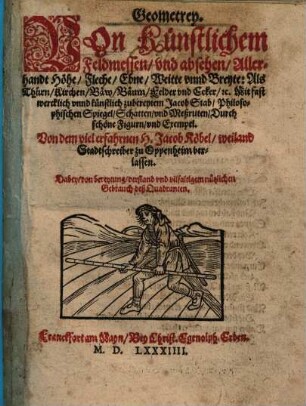 Geometrey.
VOn Künstlichem
Feldmessen/ vnd absehen/ Aller-
handt Höhe/ Fleche/ Ebne/ Weitte vnnd Breyte: Als
Thürn/ Kirchen/ Bäw/ Bäum/ Felder vnd Ecker/ ꝛc. Mit fast
wercklich vnnd künstlich zubereytem Jacob Stab/ Philoso-
phischen Spiegel/ Schatten/ vnd Meßruten/ Durch
schöne Figurn/ vnd Exempel.
Von dem viel erfahrnen H. Jacob Köbel/ weiland
Stadtschreiber zu Oppenheim ver-
lassen.
Dabey/ von bereytung/ verstand vnd vilfaltigem nützlichen
Gebrauch deß Quadranten.
Franckfort am Mayn/ Bey Christ. Egenolph. Erben.
M. D. LXXXIIII.